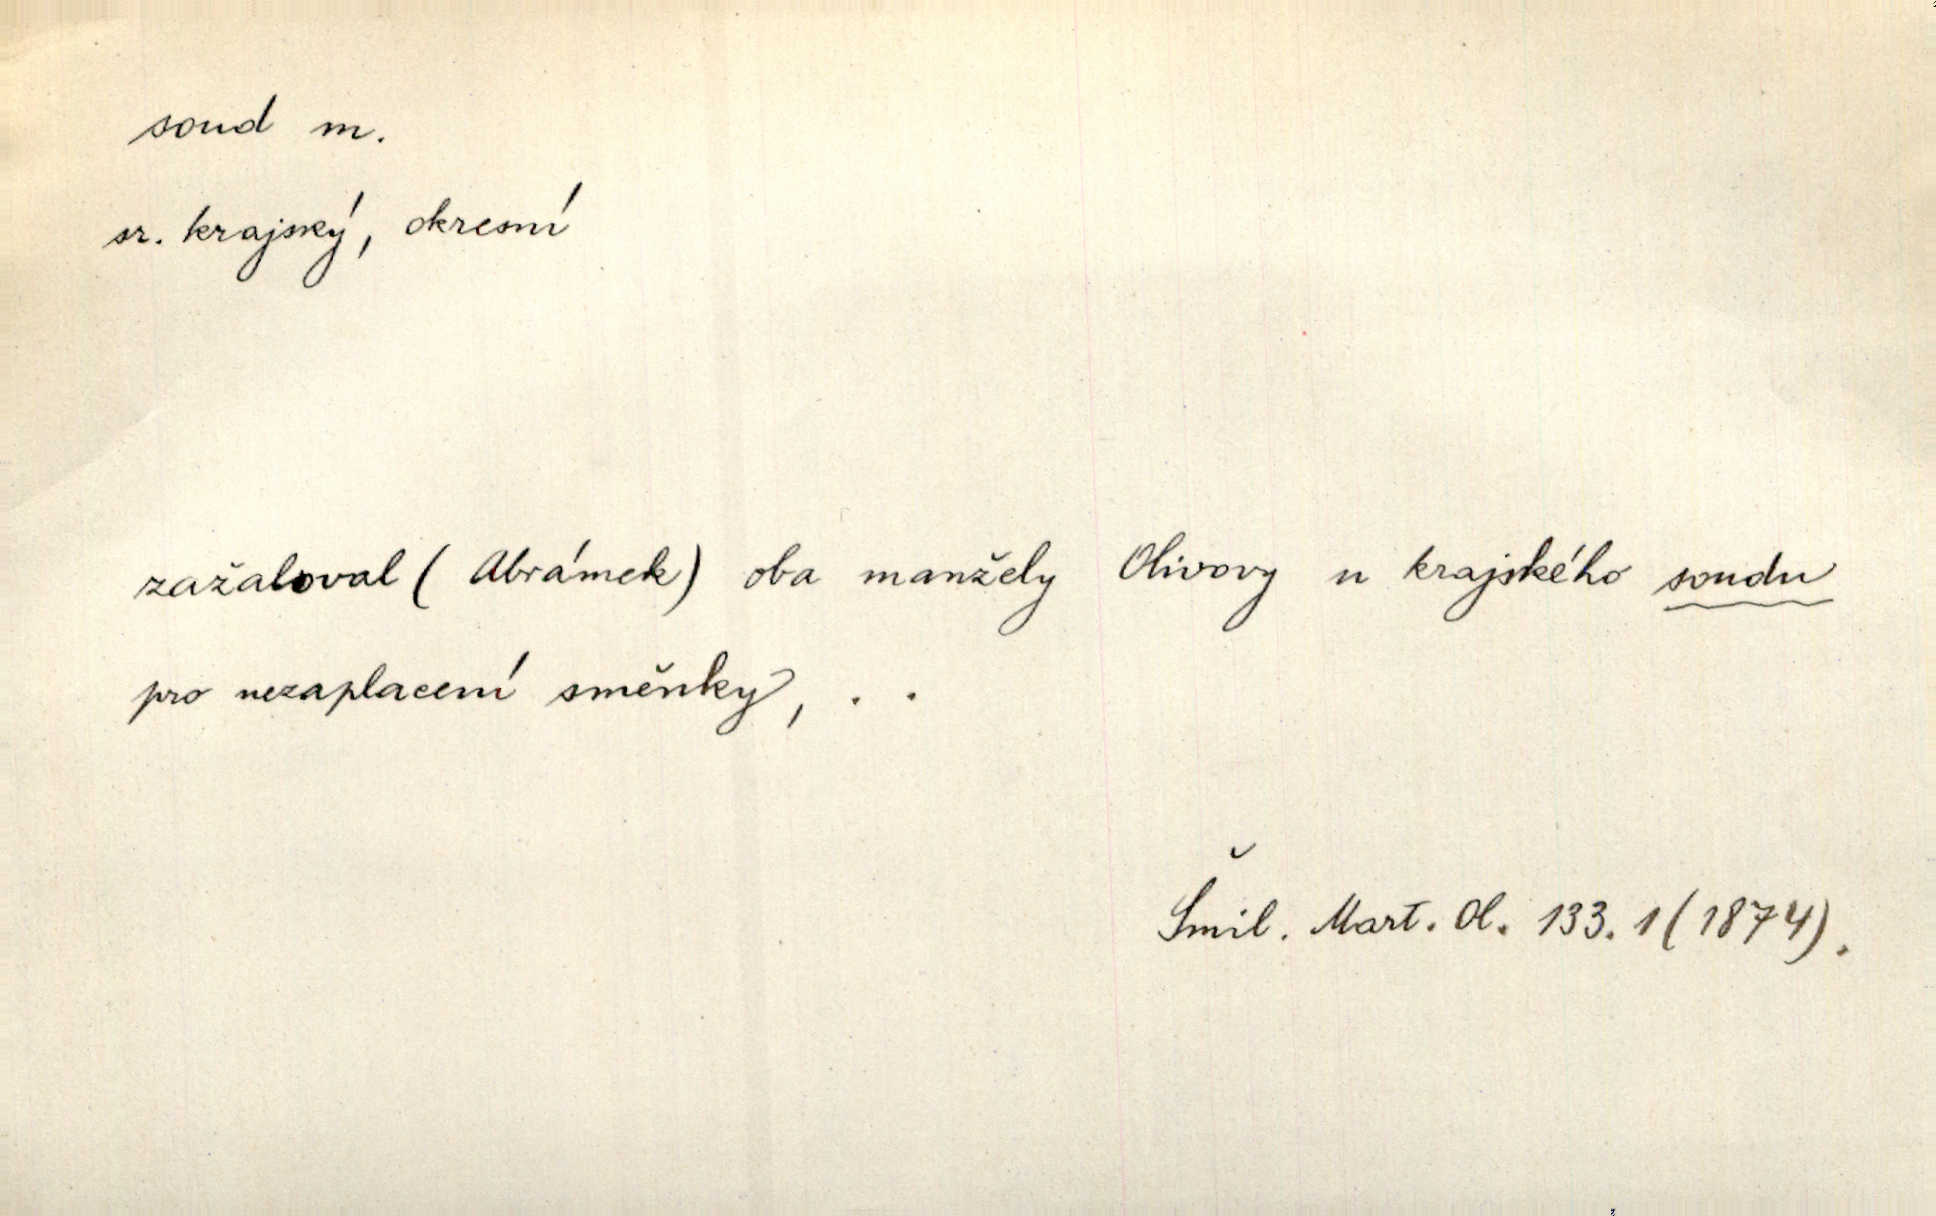 soud m.
sr. krajský, okresní
zažaloval ( Abrámek) oba manžely Olivovy u krajského soudu
pro nezaplacení směnky, . .
Šmil. Mart. Ol. 133. 1 (1874).